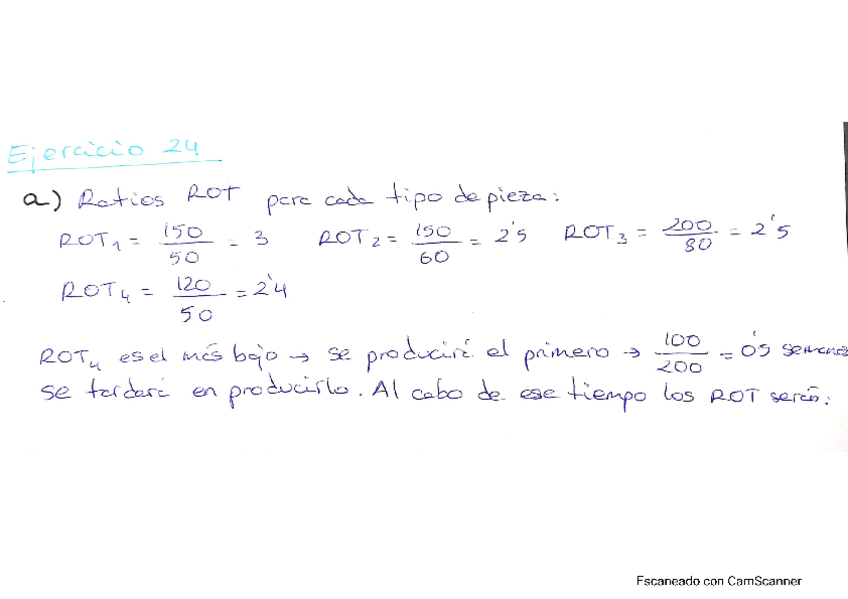 Ejercicio 24
a) Ratios ROT para cada tipo de pieza:
ROT₁ = 150/50 = 3 ROT₂ = 150/60 = 2'5 ROT₃ = 200/80 = 2'5
ROT₄ = 120/50 = 2'4
ROT₄ es el más bajo → se producirá el primero → 100/200 = 0'5 semanas
se tardará en producirlo. Al cabo de ese tiempo los ROT serán:
Escaneado con CamScanner